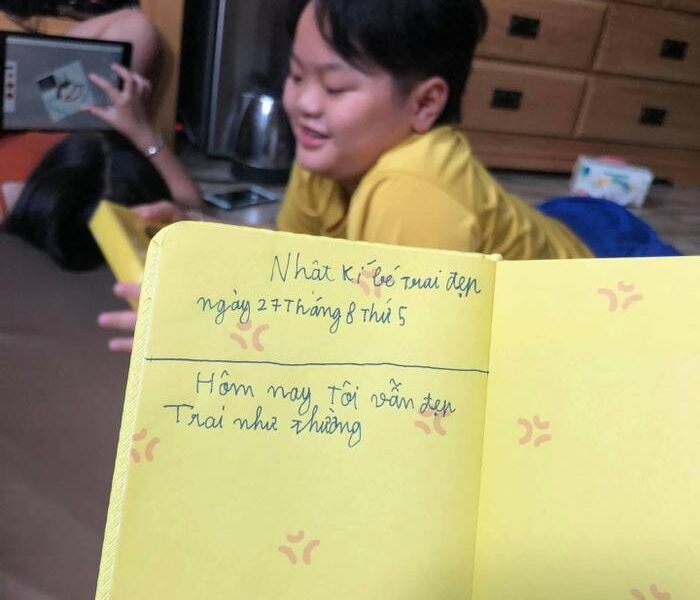 Nhật kí bé trai đẹp
ngày 27 tháng 8 thứ 5
Hôm nay tôi vẫn đẹp
Trai như thường